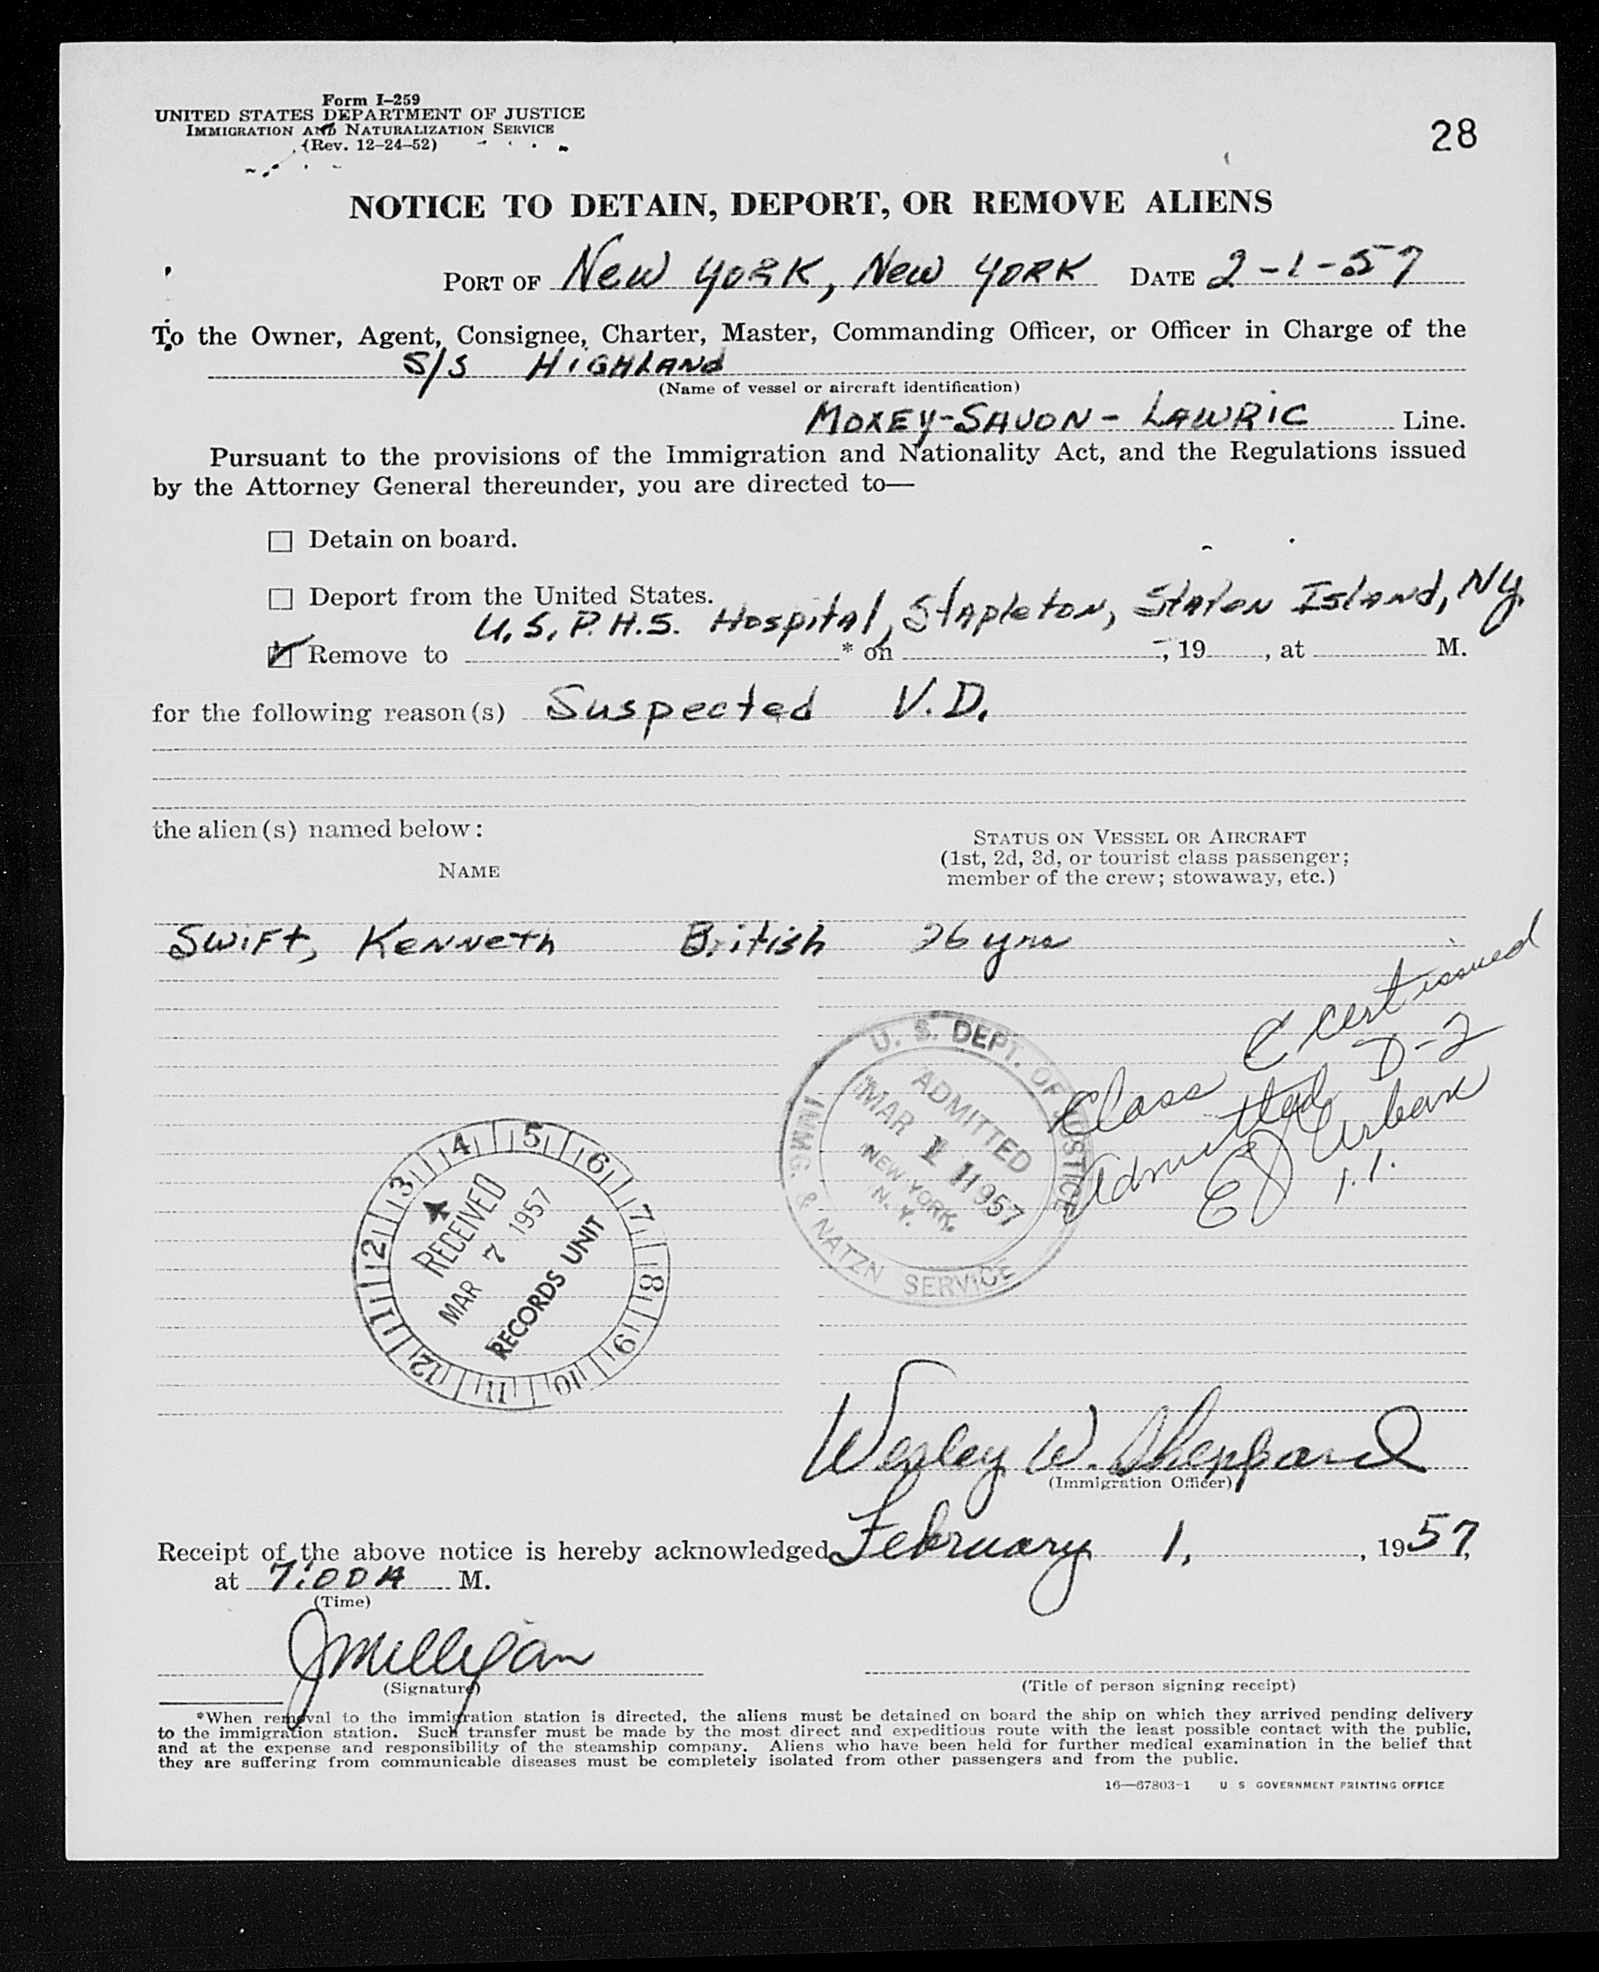 Form I-259
UNITED STATES DEPARTMENT OF JUSTICE
IMMIGRATION AND NATURALIZATION SERVICE
(Rev. 12-24-52)
28
NOTICE TO DETAIN, DEPORT, OR REMOVE ALIENS
PORT OF New York, New York DATE 2-1-57
To the Owner, Agent, Consignee, Charter, Master, Commanding Officer, or Officer in Charge of the
S/S HIGHLAND
(Name of vessel or aircraft identification)
MOXEY-SAVON-LAWRIC Line.
Pursuant to the provisions of the Immigration and Nationality Act, and the Regulations issued
by the Attorney General thereunder, you are directed to—
Detain on board.
Deport from the United States.
U.S.P.H.S. Hospital, Stapleton, Staten Island, NY.
Remove to * on , 19 , at M.
for the following reason(s) Suspected V.D.
the alien(s) named below:
STATUS ON VESSEL OR AIRCRAFT
(1st, 2d, 3d, or tourist class passenger;
member of the crew; stowaway, etc.)
NAME
Swift, Kenneth British 26 yrs
Class C cert issued
Admitted D-2
EJ Urban
I.I.
U. S. DEPT. OF JUSTICE
ADMITTED
MAR 1 1957
NEW YORK,
N. Y.
IMMG. & NATZN SERVICE
1 2 3 4 5 6 7 8 9 10 11 12
RECEIVED
MAR 7 1957
RECORDS UNIT
Wesley W. Sheppard
(Immigration Officer)
Receipt of the above notice is hereby acknowledged February 1, , 1957,
at 7:00 A M.
(Time)
J Milligan
(Signature)
(Title of person signing receipt)
*When removal to the immigration station is directed, the aliens must be detained on board the ship on which they arrived pending delivery
to the immigration station. Such transfer must be made by the most direct and expeditious route with the least possible contact with the public,
and at the expense and responsibility of the steamship company. Aliens who have been held for further medical examination in the belief that
they are suffering from communicable diseases must be completely isolated from other passengers and from the public.
16—67803-1 U S GOVERNMENT PRINTING OFFICE